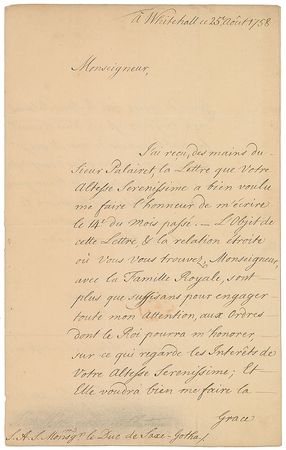 À Whitehall ce 25. Août 1758.
Monseigneur,
J'ai reçu, des mains du
Sieur Palairet, la Lettre que Votre
Altesse Serenissime a bien voulu
me faire l'honneur de m'écrire
le 14.e du Mois passé. — L'Objet de
cette Lettre, & la relation étroite
où Vous Vous trouvez, Monseigneur,
avec la Famille Royale, sont
plus que suffisans pour engager
toute mon Attention, aux Ordres
dont le Roi pourra m'honorer,
sur ce qui regarde les Interêts de
Votre Altesse Serenissime; Et
Elle voudra bien me faire la
Grace
S. A. S. Monsgr. le Duc de Saxe-Gotha.